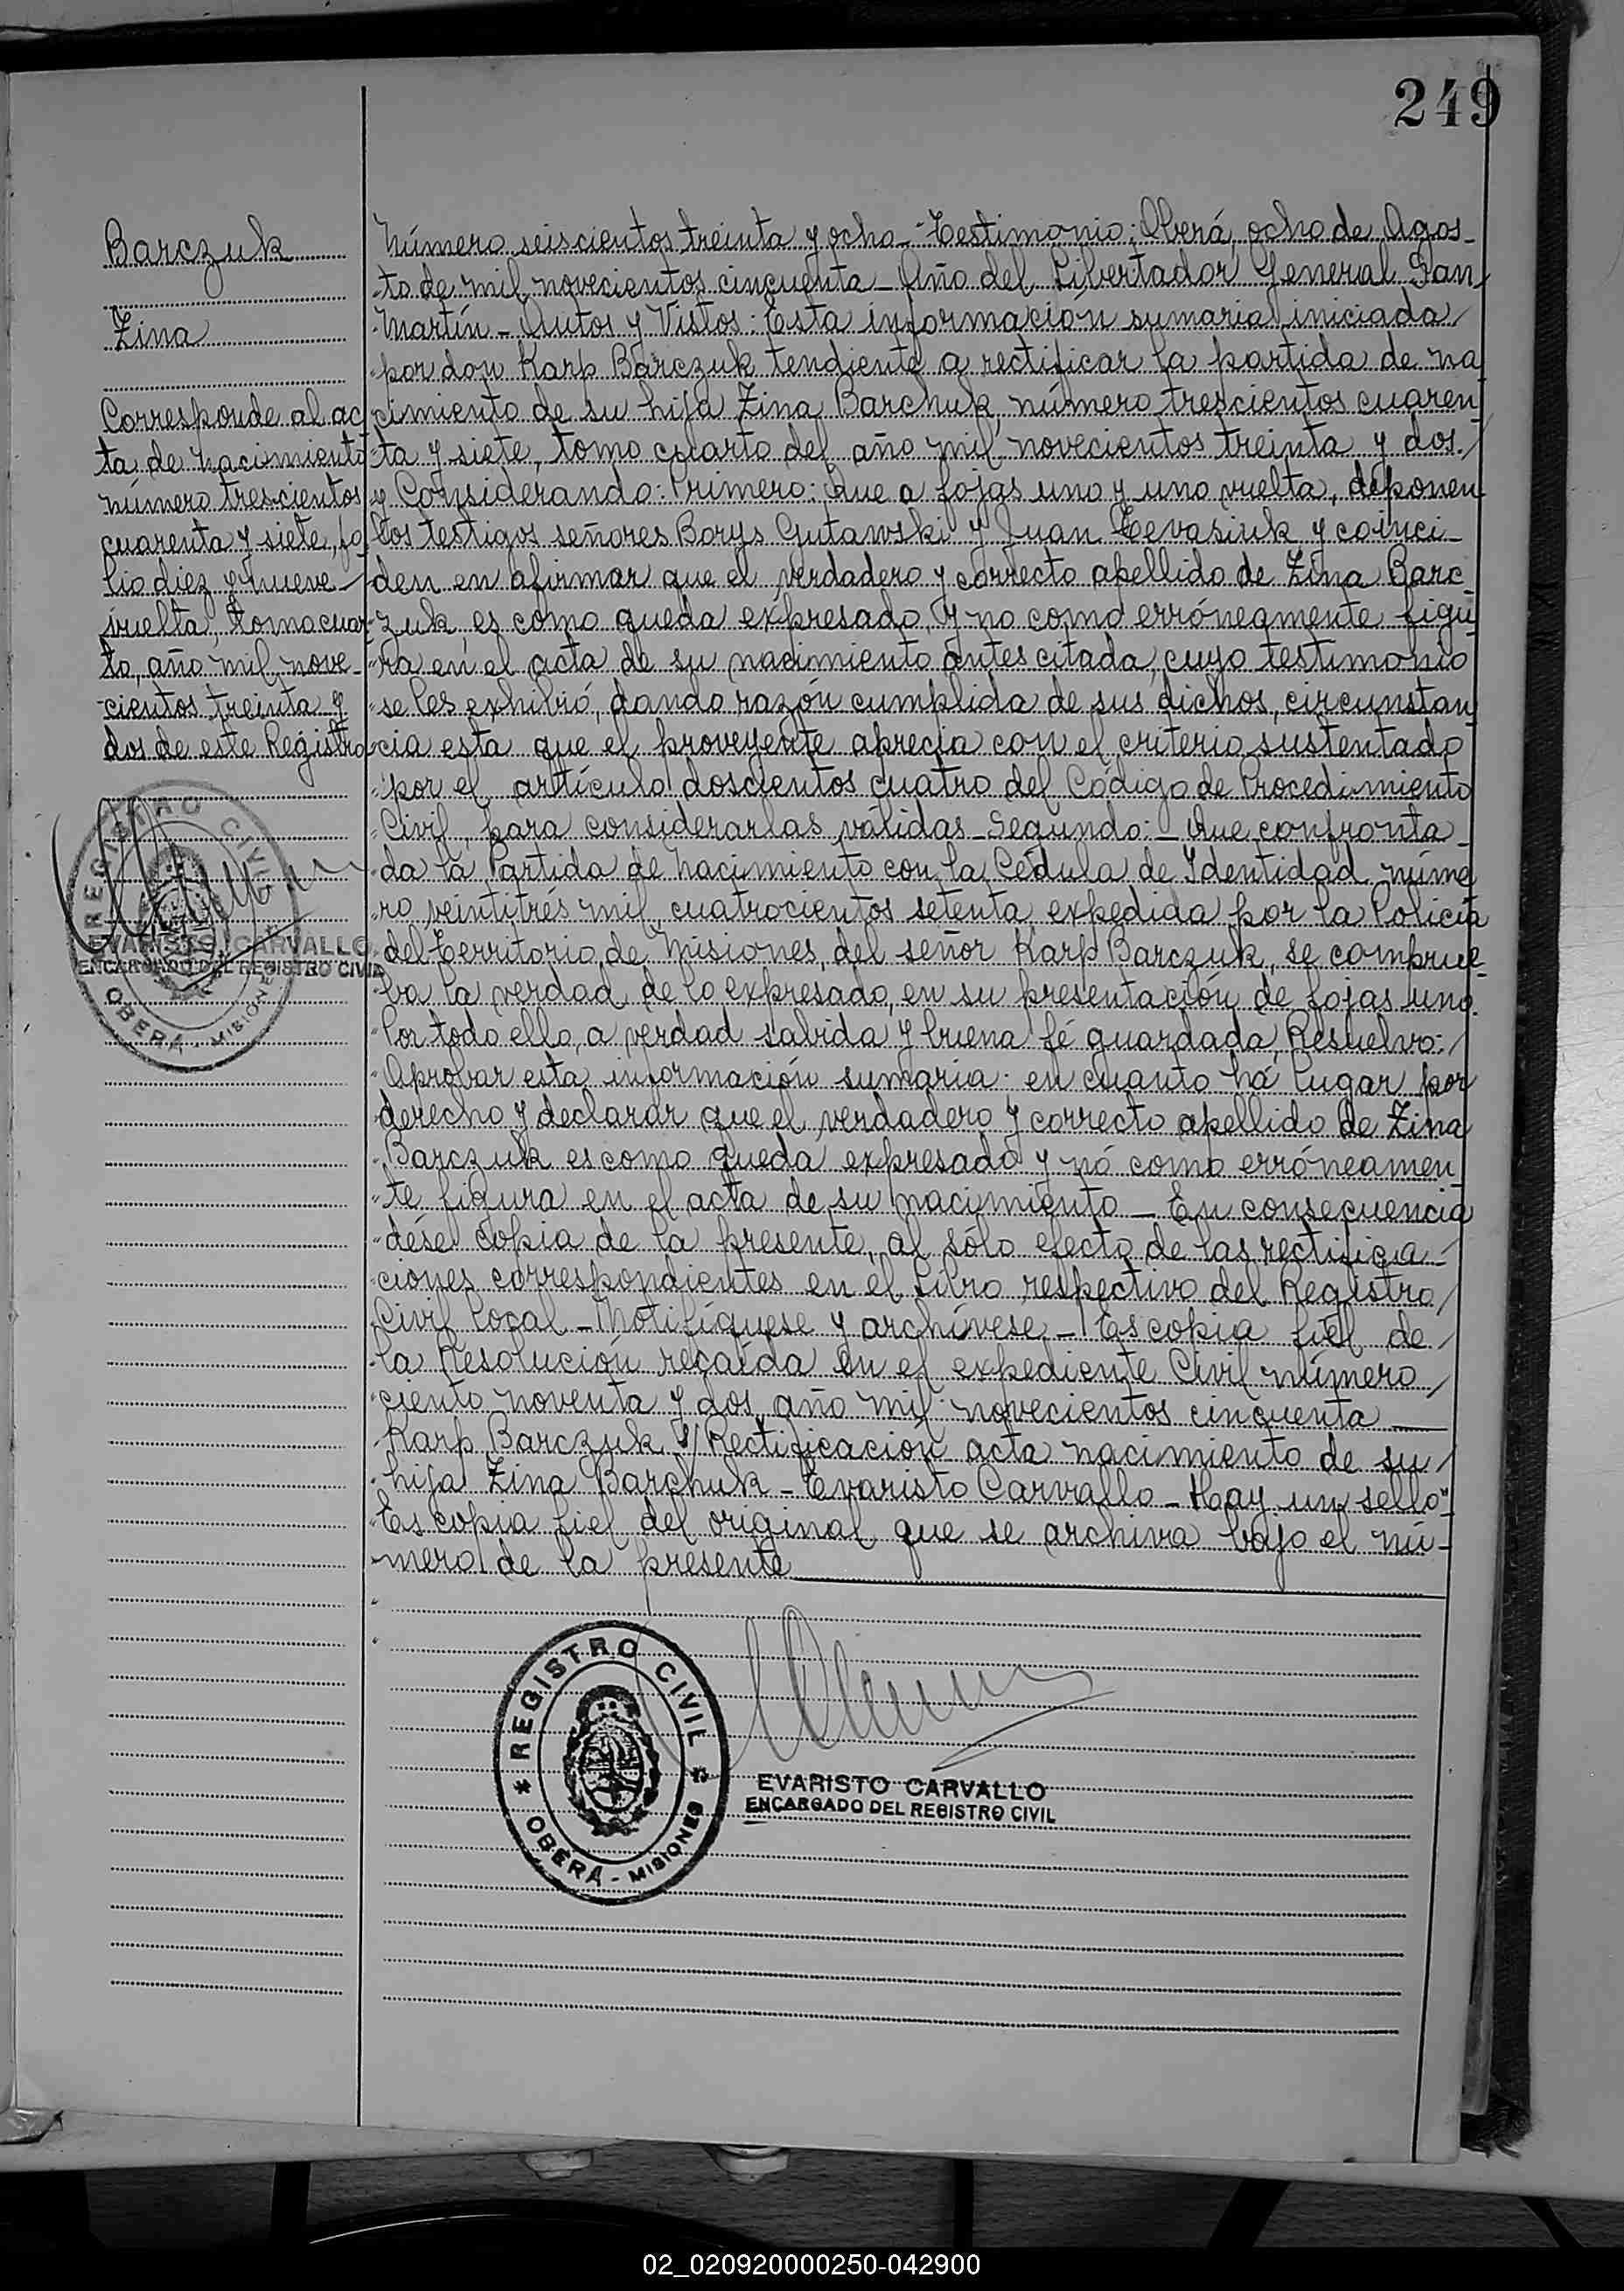 249
Barczuk
Zina
Corresponde al ac
ta de nacimiento
número trescientos
cuarenta y siete, fo
lio diez y nueve
vuelta, tomo cuar
to, año mil nove-
cientos treinta y
dos de este Registro
REGISTRO CIVIL
EVARISTO CARVALLO
ENCARGADO DEL REGISTRO CIVIL
OBERÁ - MISIONES
Número seiscientos treinta y ocho - "Testimonio: Oberá, ocho de Agos-
to de mil novecientos cincuenta - Año del Libertador General San
Martín - Autos y Vistos: Esta información sumaria iniciada
por don Karp Barczuk tendiente a rectificar la partida de na
cimiento de su hija Zina Barchuk, número trescientos cuaren
ta y siete, tomo cuarto del año mil novecientos treinta y dos.
y Considerando: Primero: Que a fojas uno y uno vuelta, deponen
los testigos señores Borys Gutawski y Juan Tevasiuk y coinci-
den en afirmar que el verdadero y correcto apellido de Zina Barc
zuk es como queda expresado, y no como erróneamente figu
ra en el acta de su nacimiento antes citada, cuyo testimonio
se les exhibió, dando razón cumplida de sus dichos, circunstan
cia esta que el proveyente aprecia con el criterio sustentado
por el artículo doscientos cuatro del Código de Procedimiento
Civil, para considerarlas válidas - Segundo: - Que confronta-
da la Partida de nacimiento con la Cédula de Identidad núme
ro veintitrés mil cuatrocientos setenta expedida por la Policía
del Territorio de Misiones, del señor Karp Barczuk, se comprue-
ba la verdad de lo expresado, en su presentación de fojas uno.
Por todo ello, a verdad sabida y buena fé guardada, Resuelvo:
Aprobar esta información sumaria en cuanto há lugar por
derecho y declarar que el verdadero y correcto apellido de Zina
Barczuk es como queda expresado y nó como erróneamen
te figura en el acta de su nacimiento - En consecuencia
dése copia de la presente, al sólo efecto de las rectifica-
ciones correspondientes en el Libro respectivo del Registro
Civil Local - Notifíquese y archívese - Es copia fiel de
la Resolución recaída en el expediente Civil número
ciento noventa y dos, año mil novecientos cincuenta
Karp Barczuk s/ Rectificación acta nacimiento de su
hija Zina Barchuk - Evaristo Carvallo - Hay un sello"
Es copia fiel del original que se archiva bajo el nú-
mero de la presente
REGISTRO CIVIL
OBERÁ - MISIONES
EVARISTO CARVALLO
ENCARGADO DEL REGISTRO CIVIL
02_020920000250-042900